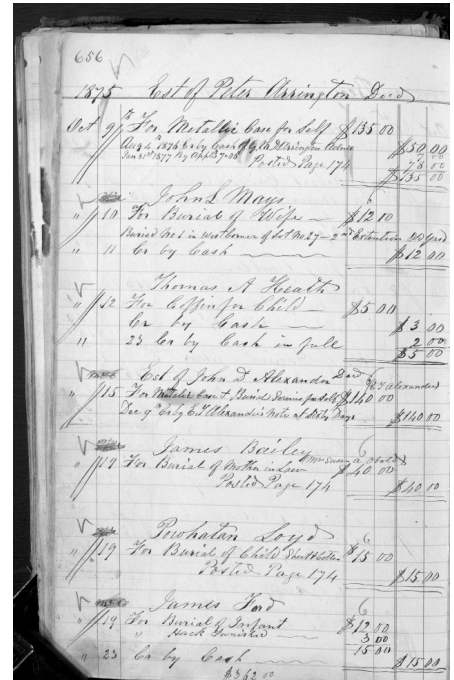 656
1875 Est of Peter Arrington Decd
Oct 9th For Metallic Case for Self $135 00
Aug 4th 1876 Cr by Cash of Arrington $50.00
Jan 31st 1877 By
Posted Page 174 $135 00
John L Mays
" 10 For Burial of Wife $12 00
Buried No 1 in West Corner of Lot No 27 — 2nd Extention
" 11 Cr by Cash $12 00
Thomas A Heath
" 12 For Coffin for Child $5 00
Cr by Cash $3 00
" 23 Cr by Cash in full 2 00
$5 00
Est of John D Alexander Decd
" 15 For Metalic Case & Burial Service for Self $140 00
Dec 9 Cr by E T Alexander's Note at Sixty Days $140 00
James Bailey
" 19 For Burial of Mother in Law $40 00
Posted Page 174 $40 00
Powhatan Loyd 6
" 19 For Burial of Child $15 00
Posted Page 174 $15 00
James Ford 6
" 19 For Burial of Infant $12 00
" Hack Furnished 3 00
15 00
" 23 Cr by Cash $15 00
$362 00